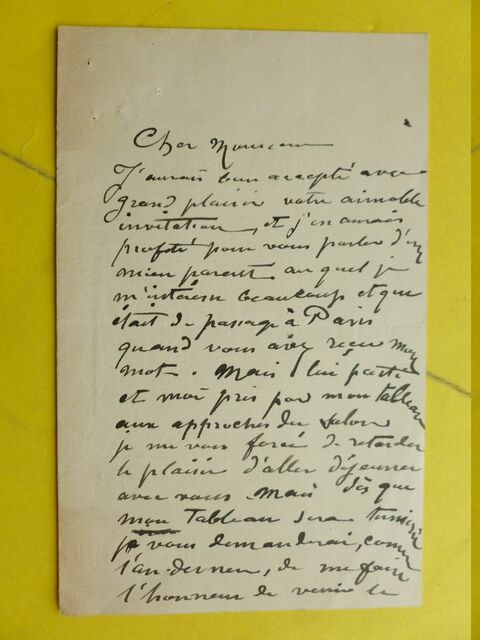 Cher Monsieur
J'aurais bien accepté avec
grand plaisir votre aimable
invitation, et j'en aurais
profité pour vous parler d'un
mien parent auquel je
m'intéresse beaucoup et qui
était de passage à Paris
quand vous avez reçu mon
mot. Mais lui parti
et moi pris par mon tableau
aux approches du salon
je me vois forcé de retarder
le plaisir d'aller déjeuner
avec vous. Mais dès que
mon Tableau sera terminé
je vous demanderai, comme
l'an dernier, de me faire
l'honneur de venir le